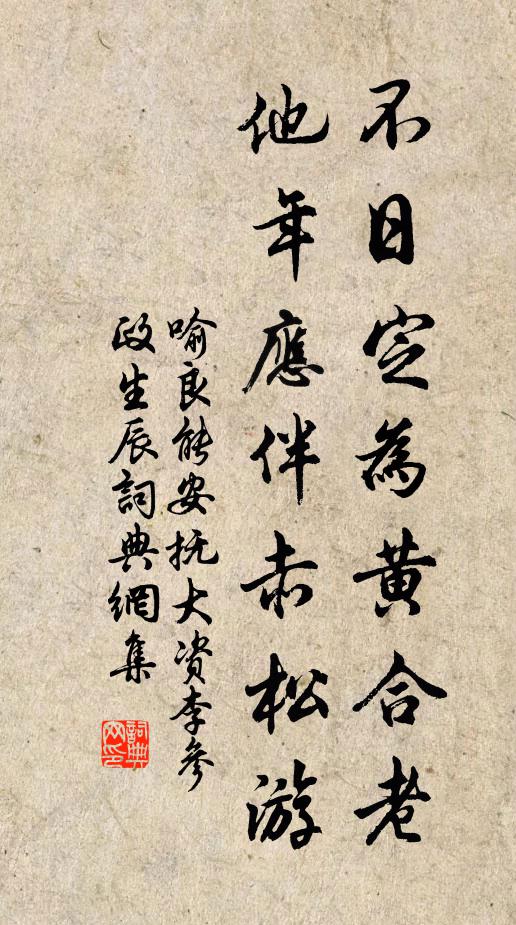 不日定為黄合老
他年應伴赤松游
喻良能安抚大资李參
政生辰詞典網集
詞典
网印